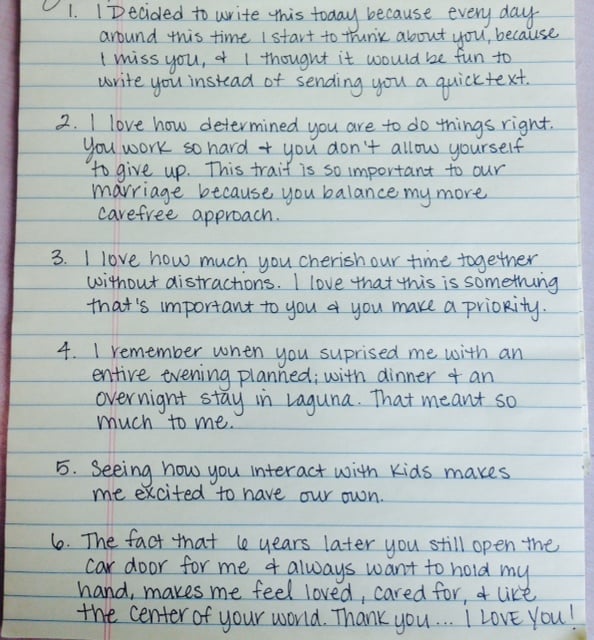 1. I Decided to write this today because every day
around this time I start to think about you, because
I miss you, & I thought it would be fun to
write you instead of sending you a quick text.
2. I love how determined you are to do things right.
You work so hard & you don't allow yourself
to give up. This trait is so important to our
marriage because you balance my more
carefree approach.
3. I love how much you cherish our time together
without distractions. I love that this is something
that's important to you & you make a priority.
4. I remember when you suprised me with an
entire evening planned; with dinner & an
overnight stay in Laguna. That meant so
much to me.
5. Seeing how you interact with kids makes
me excited to have our own.
6. The fact that 6 years later you still open the
car door for me & always want to hold my
hand, makes me feel loved, cared for, & like
the center of your world. Thank you... I LOVE YOU!